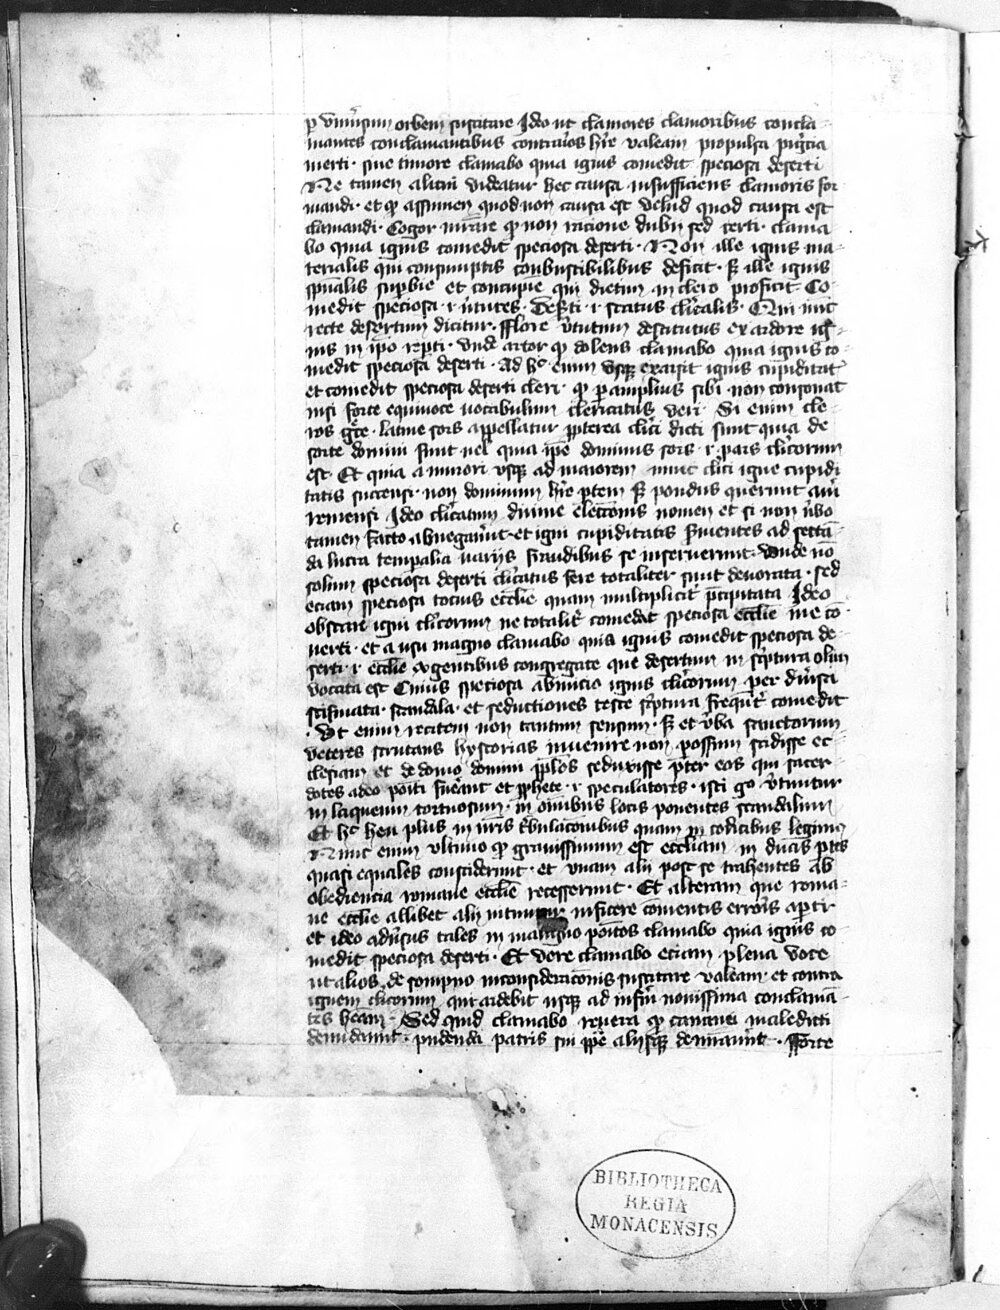 p vniusum orbem suscitare Ideo ut clamores clamoribus concla-
mantes conclamantibus contrarios hre valeam propulsa pigricia
inerti · sine timore clamabo quia ignis comedit speciosa deserti
Ne tamen alicui videatur hec causa insufficiens clamoris for
mandi · et assumen quod non causa est velud quod causa est
clamandi · Cogor non racione dubij sed certi · clama
bo quia ignis comedit speciosa deserti · Non ille ignis ma-
terialis qui consumptis combustibilibus deficit · ille ignis
spualis supbie et concupie qui dietim in clero proficit Co-
medit speciosa · Deserti · status clericalis · Qui nunc
recte desertum dicitur · fflore virtutum destitutus ex ardore ig-
nis in ipo reperti · vnde dolens clamabo quia ignis co-
medit speciosa deserti · Ad enim vsque exarsit ignis cupiditatis
et comedit speciosa deserti cleri · amplius sibi non consonat
nisi forte equiuoce uocabulum clericatus veri · Si enim cle-
ros grece · latine sors appellatur propterea clici dicti sunt quia de
sorte domini sunt uel quia ipse dominus sors · pars clicorum
est · Et quia a minori vsque ad maiorem nunc clici igne cupidi
tatis succensi · non dominum hre ptem pondus querunt
Ideo clicatum diuine electionis nomen et si non vbo
tamen facto abnegauit · et igni cupiditatis ad
da lucra temporalia varijs fraudibus se inseruerunt · Vnde no
solum speciosa deserti clicatus fere totaliter sunt deuorata · sed
eciam speciosa tocius ecclie quam multipliciter Ideo
obstare igni clicorum ne totaliter comedat speciosa ecclie me co-
uerti · et a usu magno clamabo quia ignis comedit speciosa de-
serti · ecclie ex gentibus congregate que desertum in scriptura olim
vocata est Cuius speciosa ab inicio ignis clicorum per diuersa
scismata · scandala · et seductiones teste scriptura frequenter comedit
· Vt enim recitem non tantum sensum · et verba sanctorum
veteres scrutans hystorias inuenire non possum scidisse ec-
clesiam et de domo domini pplos seduxisse preter eos qui sacer-
dotes adeo positi fuerant et pphete · speculatores · isti vertuntur
in laqueum tortuosum · in omnibus locis ponentes scandalum
Et heu plus in nris tribulacionibus quam in codicibus legimus
Nunc enim vltimo grauissimum est eccliam in duas ptes
quasi equales consciderunt · et vnam alij post se trahentes ab
obediencia romane ecclie recesserunt · Et alteram que roma-
ne ecclie alijs nituntur inficere conuentis erroris
et ideo aduersus tales in positos clamabo quia ignis co-
medit speciosa deserti · Et vere clamabo etiam plena voce
ut alios de sompno inconsideracionis suscitare valeam · et contra
ignem clicorum qui ardebit usque ad inferni nouissima conclaman-
tes · Sed quid clamabo reuera cananei maledicti
denudauit · pudenda patris sui alijsque · fforte
BIBLIOTHECA
REGIA
MONACENSIS